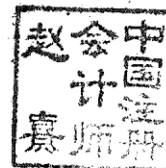 中国注册
会计师
赵真